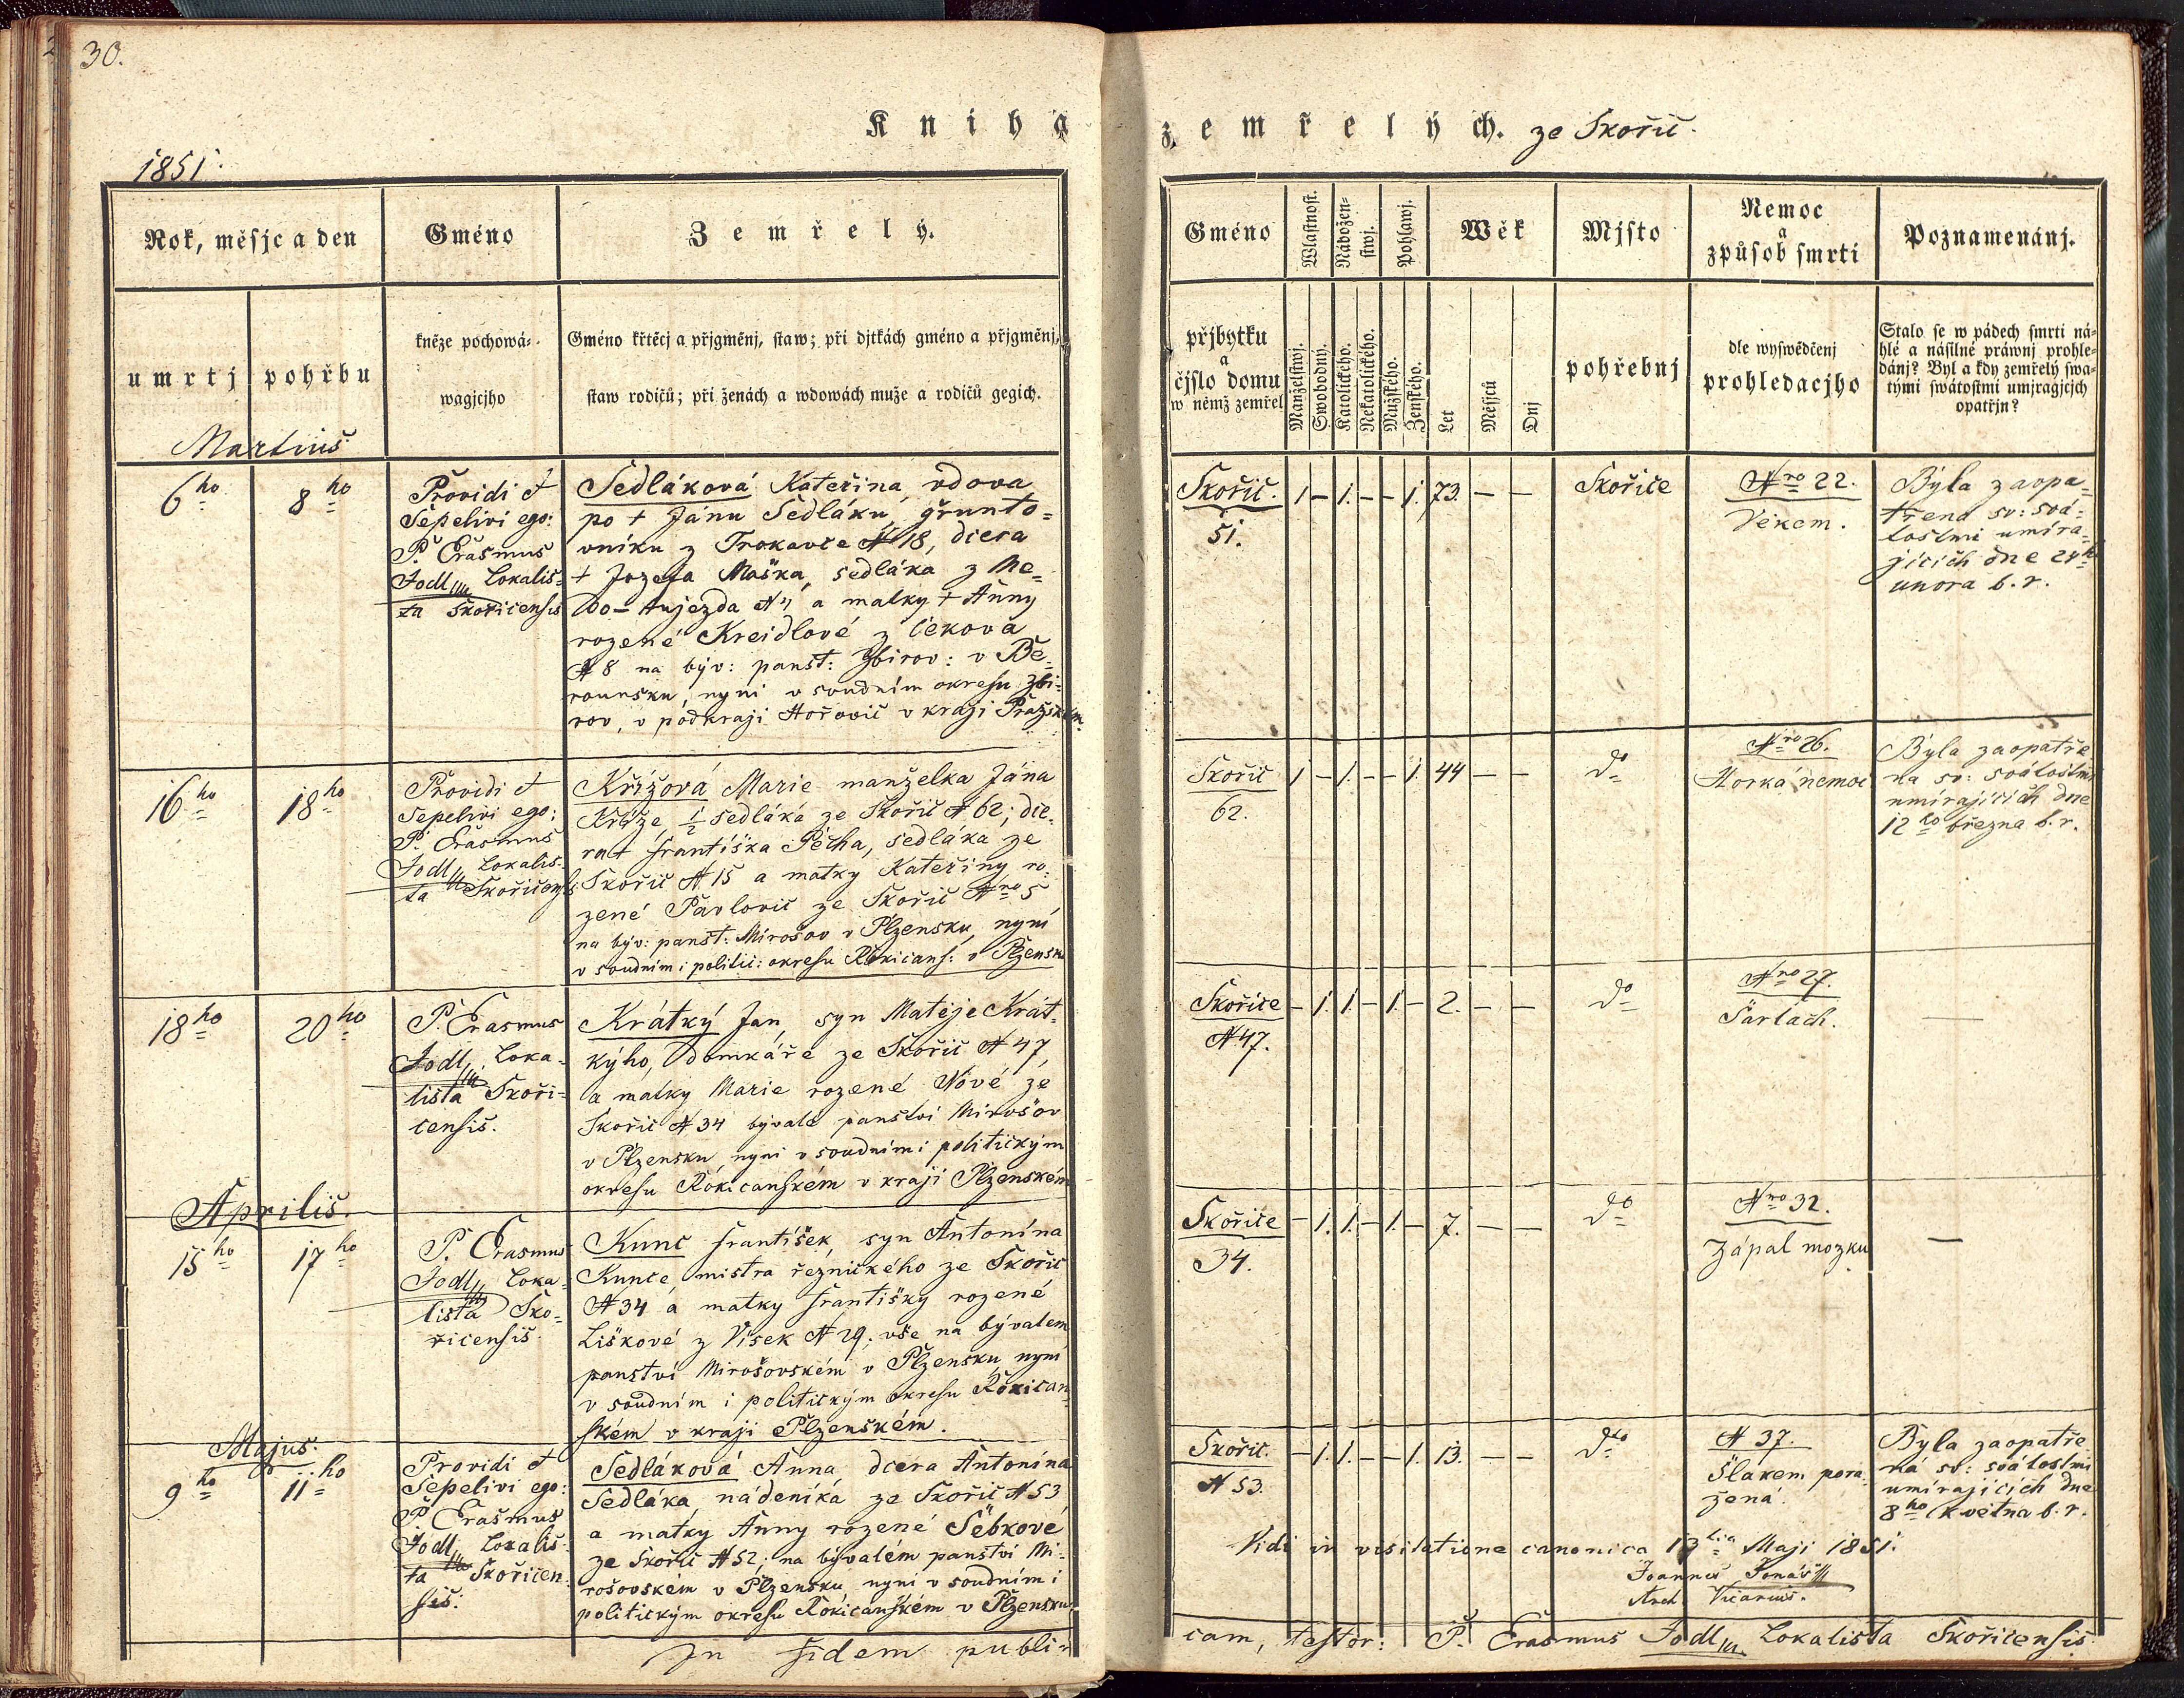 30.
Kniha zemřelých. ze Skořič.
1851.
Rok, měsjc a den
Gméno
Zemřelý.
umrtj
pohřbu
kněze pochowá-
wagjcjho
Gméno křtěcj a přjgměnj, staw; při djtkách gméno a přjgměnj,
staw rodičů; při ženách a wdowách muže a rodičů gegich.
Gméno
Wlastnost.
Nábožen-
stwj.
Pohlawj.
Wěk
Mjsto
Nemoc
a
způsob smrti
Poznamenánj.
přjbytku
a
čjslo domu
w němž zemřel
Manželstwj.
Swobodný.
Katolického.
Nekatolického.
Mužského.
Ženského.
Let
Měsjců
Dnj
pohřebnj
dle wyswědčenj
prohledacjho
Stalo se w pádech smrti ná-
hlé a násilné práwnj prohle-
dánj? Byl a kdy zemřelý swa-
tými swátostmi umjragjcjch
opatřjn?
Martius
6ho
8ho
Providi et
Sepelivi ego:
P. Erasmus
Jodl, Lokalis-
ta Skořicensis
Sedláková Kateřina, vdova
po + Jánu Sedláku, gřunto-
vníku z Trokavce N 18, dcera
+ Jozefa Maška, sedláka z Me-
do-Aujezda N 4 a matky + Anny
rozené Kreidlové z Čekova
N 8 na býv: panst: Zbirov: v Be-
rounsku, nyni v soudním okresu Zbi-
rov, v podkraji Hořovic v kraji Pražském.
Skořic.
51.
1 – 1. – – 1. 73. – –
Skořice
Nro 22.
Věkem.
Byla zaopa-
třena sv: svá-
tostmi umíra-
jících dne 24ho
unora b. r.
16ho
18ho
Providi et
Sepelivi ego:
P. Erasmus
Jodl, Lokalis-
ta Skořicensis
Křížová Marie manželka Jána
Kříže, 1/2 sedláka ze Skořic N 62; dce-
ra + Františka Pecha, sedláka ze
Skořic N 15 a matky Kateřiny ro-
zené Pavlovic ze Skořic Nro 5
na býv: panst: Mirošov v Plzensku, nyní
v soudním i politic: okresu Rokicans: v Plzensk
Skořic
62.
1 – 1. – – 1. 44 – –
do
Nro 26.
Horká nemoc
Byla zaopatře
na sv: svátostmi
umírajících dne
12ho března b. r.
18ho
20ho
P. Erasmus
Jodl, Loka-
lista Skoři-
censis.
Krátký Jan, syn Matěje Krát-
kýho, domkáře ze Skořic N 47,
a matky Marie rozené Nové ze
Skořic N 34 bývalé panství Mirošov
v Plzensku, nyni v soudním i politickým
okresu Rokicanském v kraji Plzenském
Skořice
N 47.
– 1. 1. – 1. – 2. – –
do
Nro 27.
Šarlach.
–
Aprilis.
15ho
17ho
P. Erasmus
Jodl, Loka-
lista Sko-
řicensis.
Kunc František, syn Antonína
Kunce mistra řeznického ze Skořic
N 34 a matky Františky rozené
Liškové z Visek N 29; vše na bývalém
panství Mirošovském v Plzensku, nyni
v soudním i politickým okresu Rokican
ském v kraji Plzenském.
Skořice
34.
– 1. 1. – 1. – 7. – –
do
Nro 32.
Zápal mozku
–
Majus.
9ho
11ho
Providi et
Sepelivi ego:
P. Erasmus
Jodl, Lokalis-
ta Skořicen-
sis.
Sedláková Anna, dcera Antonína
Sedláka, nádeníka ze Skořic N 53
a matky Anny rozené Šebkové
ze Skořic N 52; na bývalém panství Mi-
rošovském v Plzensku, nyni v soudním i
politickým okresu Rokicanském v Plzensku.
Skořic.
N 53.
– 1. 1. – – 1. 13. – –
dto
N 37.
Šlakem pora
žená.
Byla zaopatře
ná sv: svátostmi
umírajících dne
8ho Května b. r.
Vidi in visitatione canonica 13tia Maji 1851.
Joannes Jonáš
Arch. Vicarius.
In fidem publi-
cam, testor: P. Erasmus Jodl, Lokalista Skořicensis.